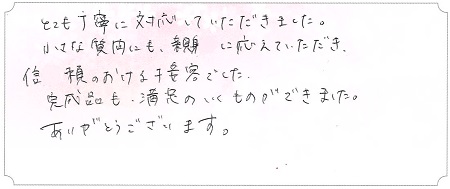 とても丁寧に対応していただきました。
小さな質問にも、親身に応えていただき、
信頼のおける接客でした。
完成品も、満足のいくものができました。
ありがとうございます。